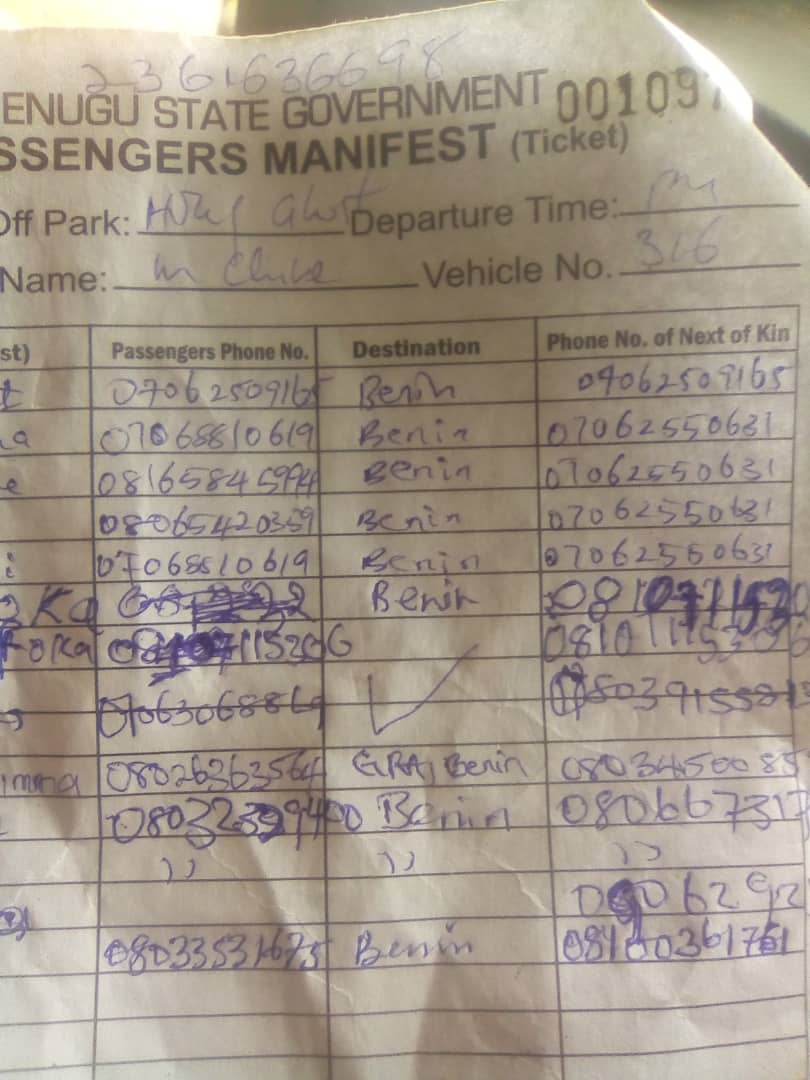 2361636698
ENUGU STATE GOVERNMENT 001097
SSENGERS MANIFEST (Ticket)
Off Park: Holy Ghost Departure Time: pm
Name: Vehicle No. 316
st) Passengers Phone No. Destination Phone No. of Next of Kin
t 07062509165 Benin 07062509165
na 07068810619 Benin 07062550631
e 08165845994 Benin 07062550631
08065420359 Benin 07062550631
i 07068810619 Benin 07062550631
Benin
07063068869
imma 08026363564 GRA, Benin 0803450085
Benin 080667317
,, ,, ,,
06292
08033531675 Benin